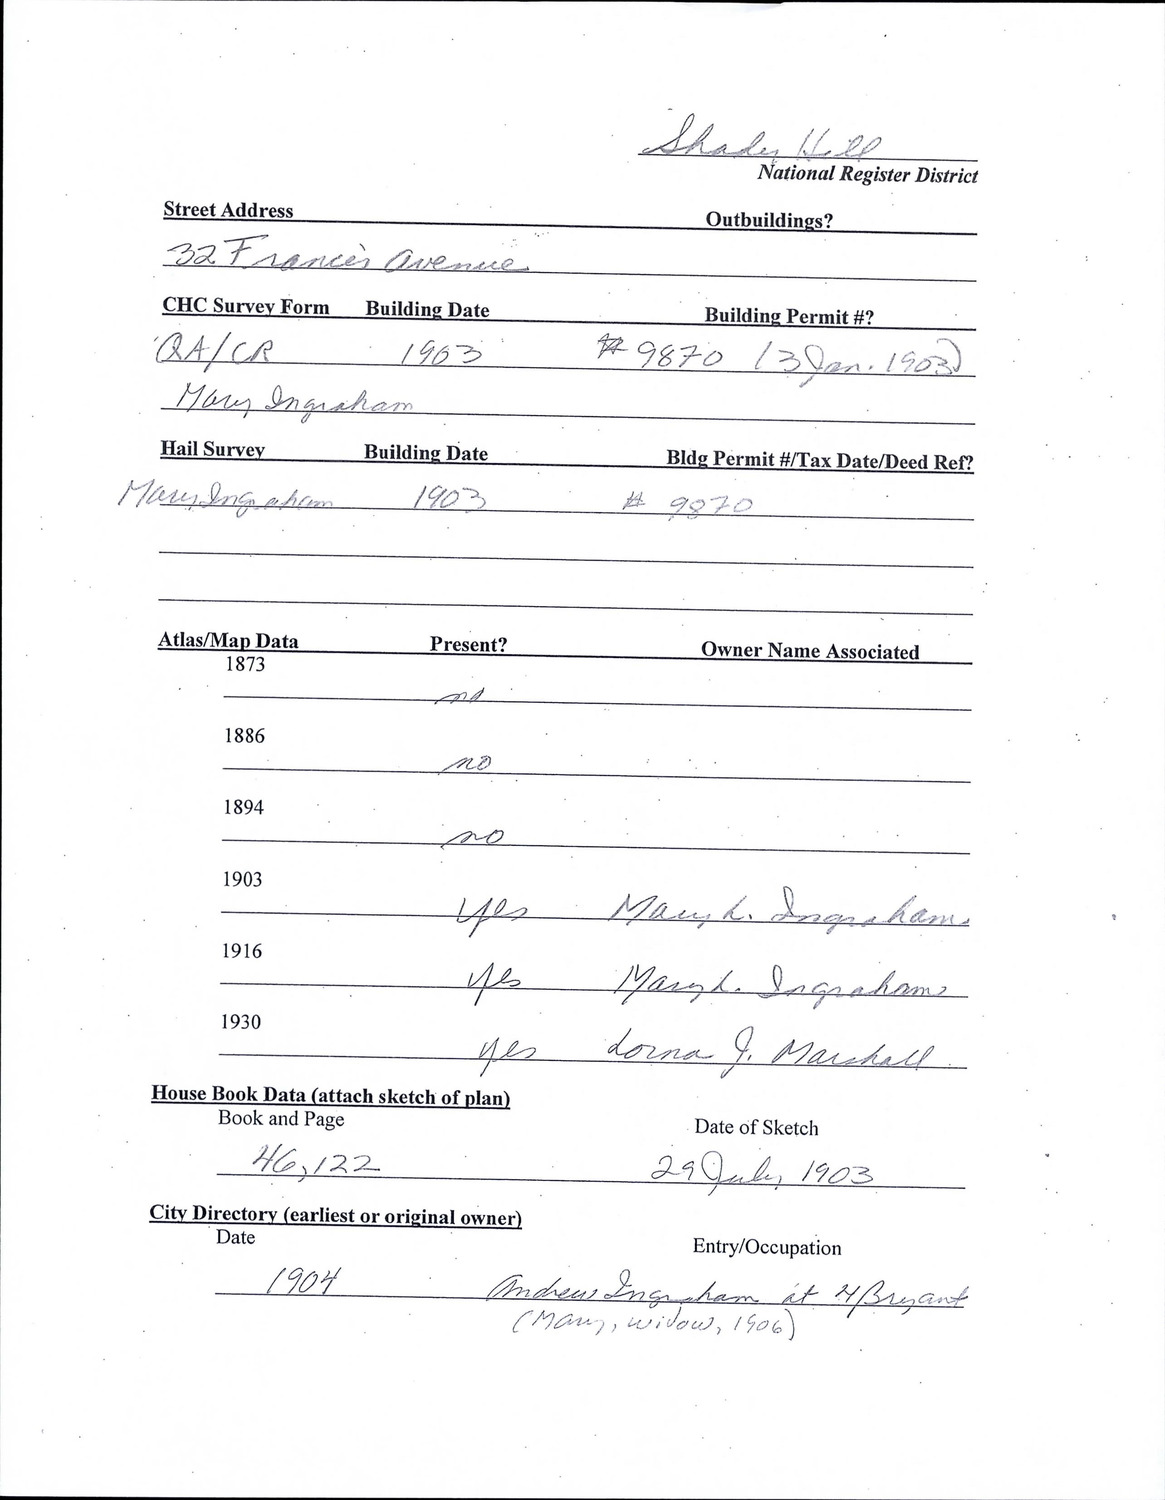 Shady Hill
National Register District
Street Address Outbuildings?
32 Francis Avenue
CHC Survey Form Building Date Building Permit #?
QA/CR 1903 # 9870 (3 Jan. 1903)
Mary Ingraham
Hail Survey Building Date Bldg Permit #/Tax Date/Deed Ref?
Mary Ingraham 1903 # 9870
Atlas/Map Data Present? Owner Name Associated
1873
no
1886
no
1894
no
1903
yes Mary L. Ingraham
1916
yes Mary L. Ingraham
1930
yes Lorna J. Marshall
House Book Data (attach sketch of plan)
Book and Page Date of Sketch
46,122 29 July, 1903
City Directory (earliest or original owner)
Date Entry/Occupation
1904 Andrew Ingraham at 4 Bryant
(Mary, widow, 1906)